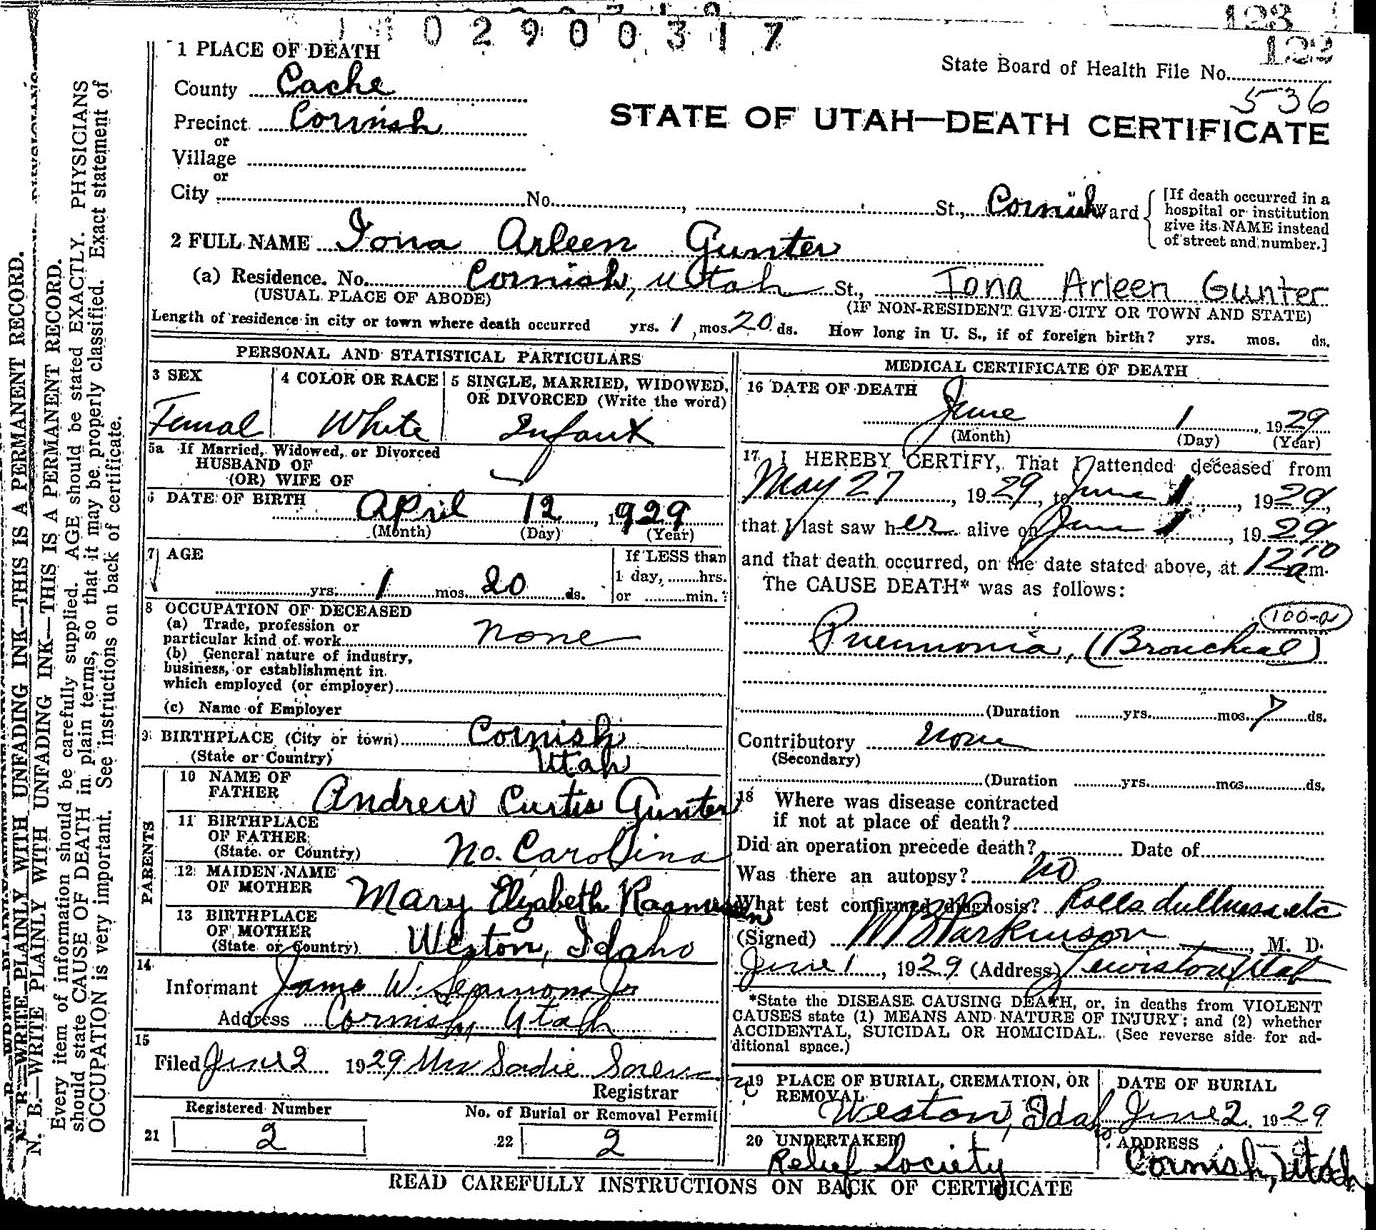 0 2 9 0 0 3 1 7
1 PLACE OF DEATH
State Board of Health File No.
County Cache
536
Precinct Cornish
STATE OF UTAH—DEATH CERTIFICATE
or
Village
or
City No. , St., Cornish Ward
[If death occurred in a hospital or institution give its NAME instead of street and number.]
2 FULL NAME Iona Arleen Gunter
(a) Residence. No. Cornish, Utah St., Iona Arleen Gunter
(USUAL PLACE OF ABODE) (IF NON-RESIDENT GIVE CITY OR TOWN AND STATE)
Length of residence in city or town where death occurred yrs. 1, mos. 20 ds. How long in U. S., if of foreign birth? yrs. mos. ds.
PERSONAL AND STATISTICAL PARTICULARS
3 SEX 4 COLOR OR RACE 5 SINGLE, MARRIED, WIDOWED, OR DIVORCED (Write the word)
Femal White Infant
5a If Married, Widowed, or Divorced
HUSBAND OF
(OR) WIFE OF
6 DATE OF BIRTH April 12, 1929
(Month) (Day) (Year)
7 AGE If LESS than
1 day, hrs.
yrs. 1 mos. 20 ds. or min.
8 OCCUPATION OF DECEASED
(a) Trade, profession or
particular kind of work none
(b) General nature of industry,
business, or establishment in
which employed (or employer)
(c) Name of Employer
9 BIRTHPLACE (City or town) Cornish
(State or Country) Utah
PARENTS
10 NAME OF FATHER Andrew Curtis Gunter
11 BIRTHPLACE OF FATHER
(State or Country) No. Carolina
12 MAIDEN NAME OF MOTHER Mary Elizabeth Rasmussen
13 BIRTHPLACE OF MOTHER
(State or Country) Weston, Idaho
14
Informant W. Jr
Address Cornish, Utah
15
Filed June 2 1929 Mrs Sadie
Registrar
Registered Number No. of Burial or Removal Permit
21 2 22 2
MEDICAL CERTIFICATE OF DEATH
16 DATE OF DEATH
June 1, 1929
(Month) (Day) (Year)
17 I HEREBY CERTIFY, That I attended deceased from
May 27, 1929, to June 1, 1929,
that I last saw her alive on June 1, 1929
and that death occurred, on the date stated above, at 12 10 a m.
The CAUSE DEATH* was as follows:
Pneumonia, (Bronchial)
(Duration yrs. mos. 7 ds.
Contributory none
(Secondary)
(Duration yrs. mos. ds.
18 Where was disease contracted
if not at place of death?
Did an operation precede death? Date of
Was there an autopsy? No
What test confirmed diagnosis? Rales dullness, etc
(Signed) Parkinson, M. D.
June 1, 1929 (Address) Lewiston Utah
*State the DISEASE CAUSING DEATH, or, in deaths from VIOLENT
CAUSES state (1) MEANS AND NATURE OF INJURY; and (2) whether
ACCIDENTAL, SUICIDAL OR HOMICIDAL. (See reverse side for ad-
ditional space.)
19 PLACE OF BURIAL, CREMATION, OR REMOVAL DATE OF BURIAL
Weston, Idaho June 2 1929
20 UNDERTAKER ADDRESS
Relief Society Cornish, Utah
READ CAREFULLY INSTRUCTIONS ON BACK OF CERTIFICATE
N. B.—WRITE PLAINLY WITH UNFADING INK—THIS IS A PERMANENT RECORD.
N. B.—WRITE PLAINLY WITH UNFADING INK—THIS IS A PERMANENT RECORD.
Every item of information should be carefully supplied. AGE should be stated EXACTLY. PHYSICIANS
should state CAUSE OF DEATH in plain terms, so that it may be properly classified. Exact statement of
OCCUPATION is very important. See instructions on back of certificate.